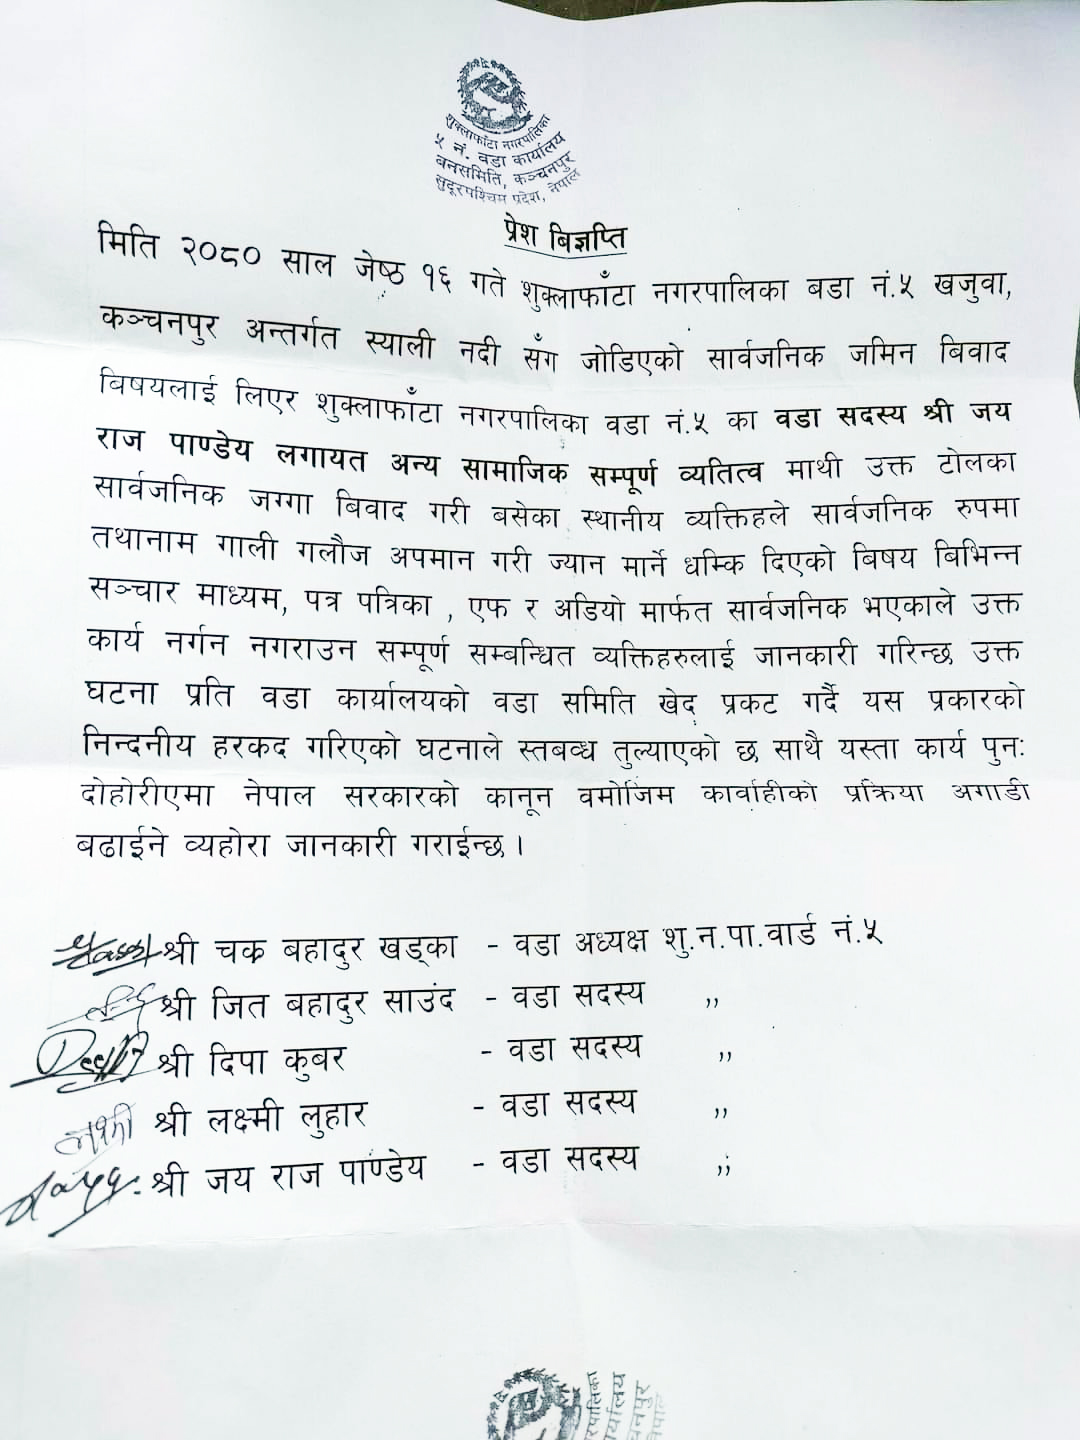 शुक्लाफाँटा नगरपालिका
५ नं. वडा कार्यालय
बनसमिति, कञ्चनपुर
सुदूरपश्चिम प्रदेश, नेपाल
प्रेश बिज्ञप्ति
मिति २०८० साल जेष्ठ १६ गते शुक्लाफाँटा नगरपालिका बडा नं.५ खजुवा,
कञ्चनपुर अन्तर्गत स्याली नदी सँग जोडिएको सार्वजनिक जमिन बिवाद
विषयलाई लिएर शुक्लाफाँटा नगरपालिका वडा नं.५ का वडा सदस्य श्री जय
राज पाण्डेय लगायत अन्य सामाजिक सम्पूर्ण व्यतित्व माथी उक्त टोलका
सार्वजनिक जग्गा बिवाद गरी बसेका स्थानीय व्यक्तिहले सार्वजनिक रुपमा
तथानाम गाली गलौज अपमान गरी ज्यान मार्ने धम्कि दिएको बिषय बिभिन्न
सञ्चार माध्यम, पत्र पत्रिका , एफ र अडियो मार्फत सार्वजनिक भएकाले उक्त
कार्य नर्गन नगराउन सम्पूर्ण सम्बन्धित व्यक्तिहरुलाई जानकारी गरिन्छ उक्त
घटना प्रति वडा कार्यालयको वडा समिति खेद प्रकट गर्दै यस प्रकारको
निन्दनीय हरकद गरिएको घटनाले स्तबव्ध तुल्याएको छ साथै यस्ता कार्य पुनः
दोहोरीएमा नेपाल सरकारको कानून वमोजिम कार्वाहीको प्रक्रिया अगाडी
बढाईने व्यहोरा जानकारी गराईन्छ ।
श्री चक्र बहादुर खड्का - वडा अध्यक्ष शु.न.पा.वार्ड नं.५
श्री जित बहादुर साउंद - वडा सदस्य ,,
श्री दिपा कुबर - वडा सदस्य ,,
लक्ष्मी श्री लक्ष्मी लुहार - वडा सदस्य ,,
श्री जय राज पाण्डेय - वडा सदस्य ,,